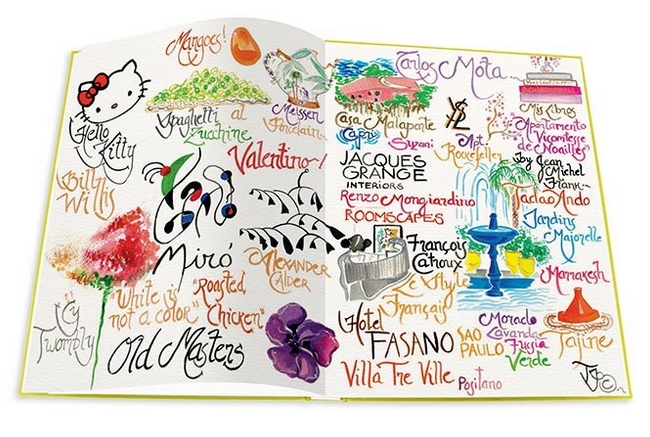 Mangoes!
Hello
Kitty
Spaghetti al
Zucchine
Meissen
Porcelain
Billy
Willis
Valentino!
Miró
Alexander
Calder
"White is
not a color"
"Roasted
Chicken"
Cy
Twombly
Old Masters
Carlos Mota
Casa Malaparte
Capri
Suzani
YSL
Apt.
Rockefeller
Mis Libros
Apartamento
Vicomtesse
de Noailles
by Jean
Michel
Frank
JACQUES
GRANGE
INTERIORS
Renzo Mongiardino
ROOMSCAPES
Tadao Ando
Jardins
Majorelle
François
Catroux
Le Style
Français
Marrakesh
Hotel
FASANO
SAO
PAULO
Morado
Lavanda
Fucsia
Verde
Tajine
Villa Tre Ville
Positano